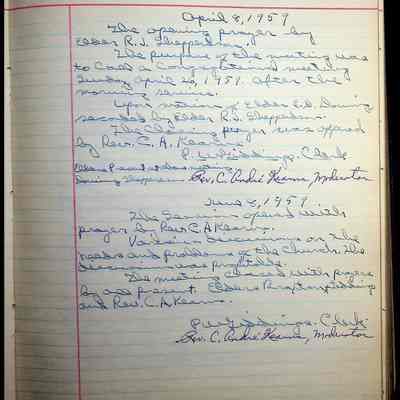 April 8, 1959
The opening prayer by
Elder R.J. Sheppardson.
The purpose of the meeting was
to Call a Congregation meeting
Sunday April 26, 1959 after the
morning service.
Upon motion of Elder
seconded by Elder R.J. Shepperdson.
The Closeing prayer was offered
by Rev. C. A. Kearns.
P. W. Giddings. Clerk
Elders Present
Rev. C. André Kearns, Moderator
June 3, 1959
The Session opened with
prayer by Rev. C.A. Kearns.
Various discussions on the
needs and problems of the Church. The
discussion was profitable.
The meeting closed with prayers
by all present. Elders Giddings
and Rev. C.A. Kearns.
P. W. Giddings. Clerk
Rev. C. André Kearns, Moderator